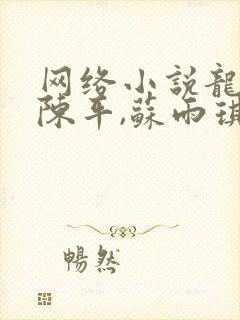 网络小说龍
陈平,蘇雨琪
暢然